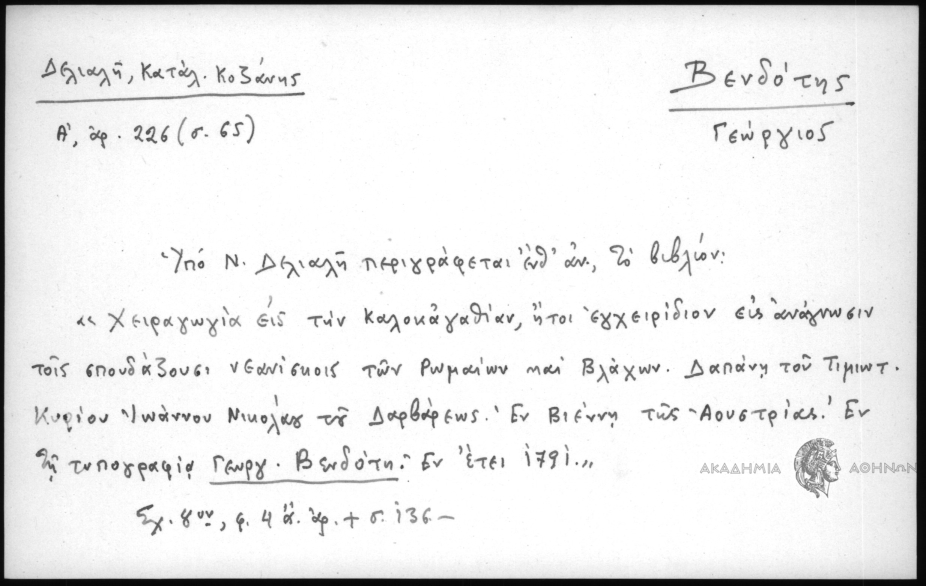 Δελιαλῆ, Κατάλ. Κοζάνης
Βενδότης
Α', ἀρ. 226 (σ. 65)
Γεώργιος
Ὑπό Ν. Δελιαλῆ περιγράφεται ἔνθ' ἀν., τὸ βιβλίον:
«Χειραγωγία εἰς τὴν καλοκἀγαθίαν, ἤτοι ἐγχειρίδιον εἰς ἀνάγνωσιν
τοῖς σπουδάζουσι νεανίσκοις τῶν Ρωμαίων καὶ Βλάχων. Δαπάνῃ τοῦ Τιμιωτ.
Κυρίου Ἰωάννου Νικολάου τοῦ Δαρβάρεως. Ἐν Βιέννῃ τῆς Ἀουστρίας. Ἐν
τῇ τυπογραφίᾳ Γεωργ. Βενδότη. Ἐν ἔτει 1791.,,
Σχ. 8ον, φ. 4 ἄ. ἀρ. + σ. 136.—
ΑΚΑΔΗΜΙΑ ΑΘΗΝΩΝ